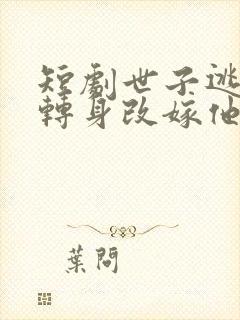 短劇世子逃
轉身改嫁他
葉問